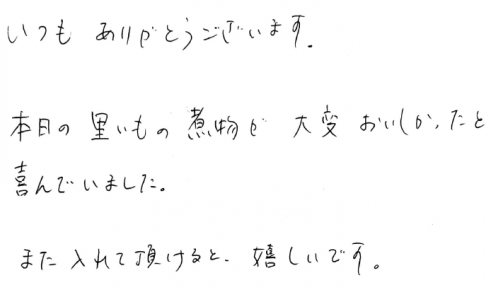 いつも ありがとうございます。
本日の 里いもの 煮物が 大変 おいしかったと
喜んでいました。
また入れて頂けると、嬉しいです。